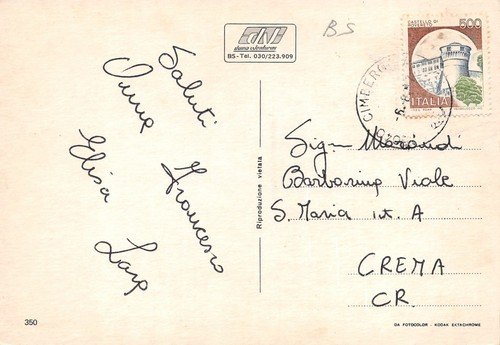 Saluti
Anna Francesco
Elisa Lara
BS
BS-Tel. 030/223.909
CASTELLO DI
ROVERETO
500
ITALIA
CIMBERGO
Riproduzione vietata
Sign Morandi
Barbarina Viale
S. Maria int. A
CREMA
CR.
350
DA FOTOCOLOR - KODAK EKTACHROME